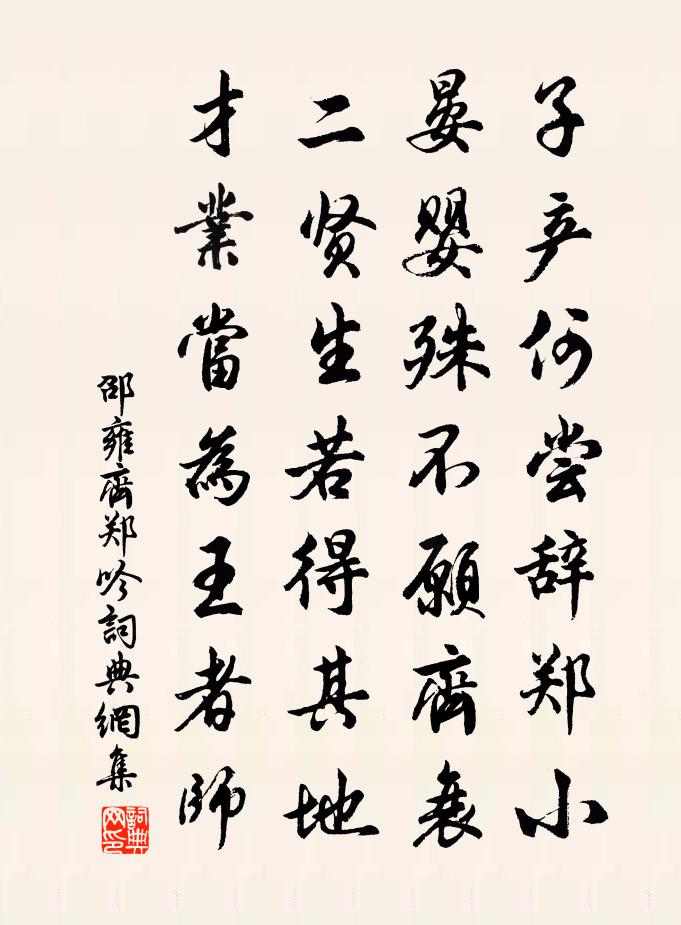 子产何尝辞郑小
晏嬰殊不願齊衰
二贤生若得其地
才業當為王者師
邵雍齊郑吟詞典網集
詞典網印